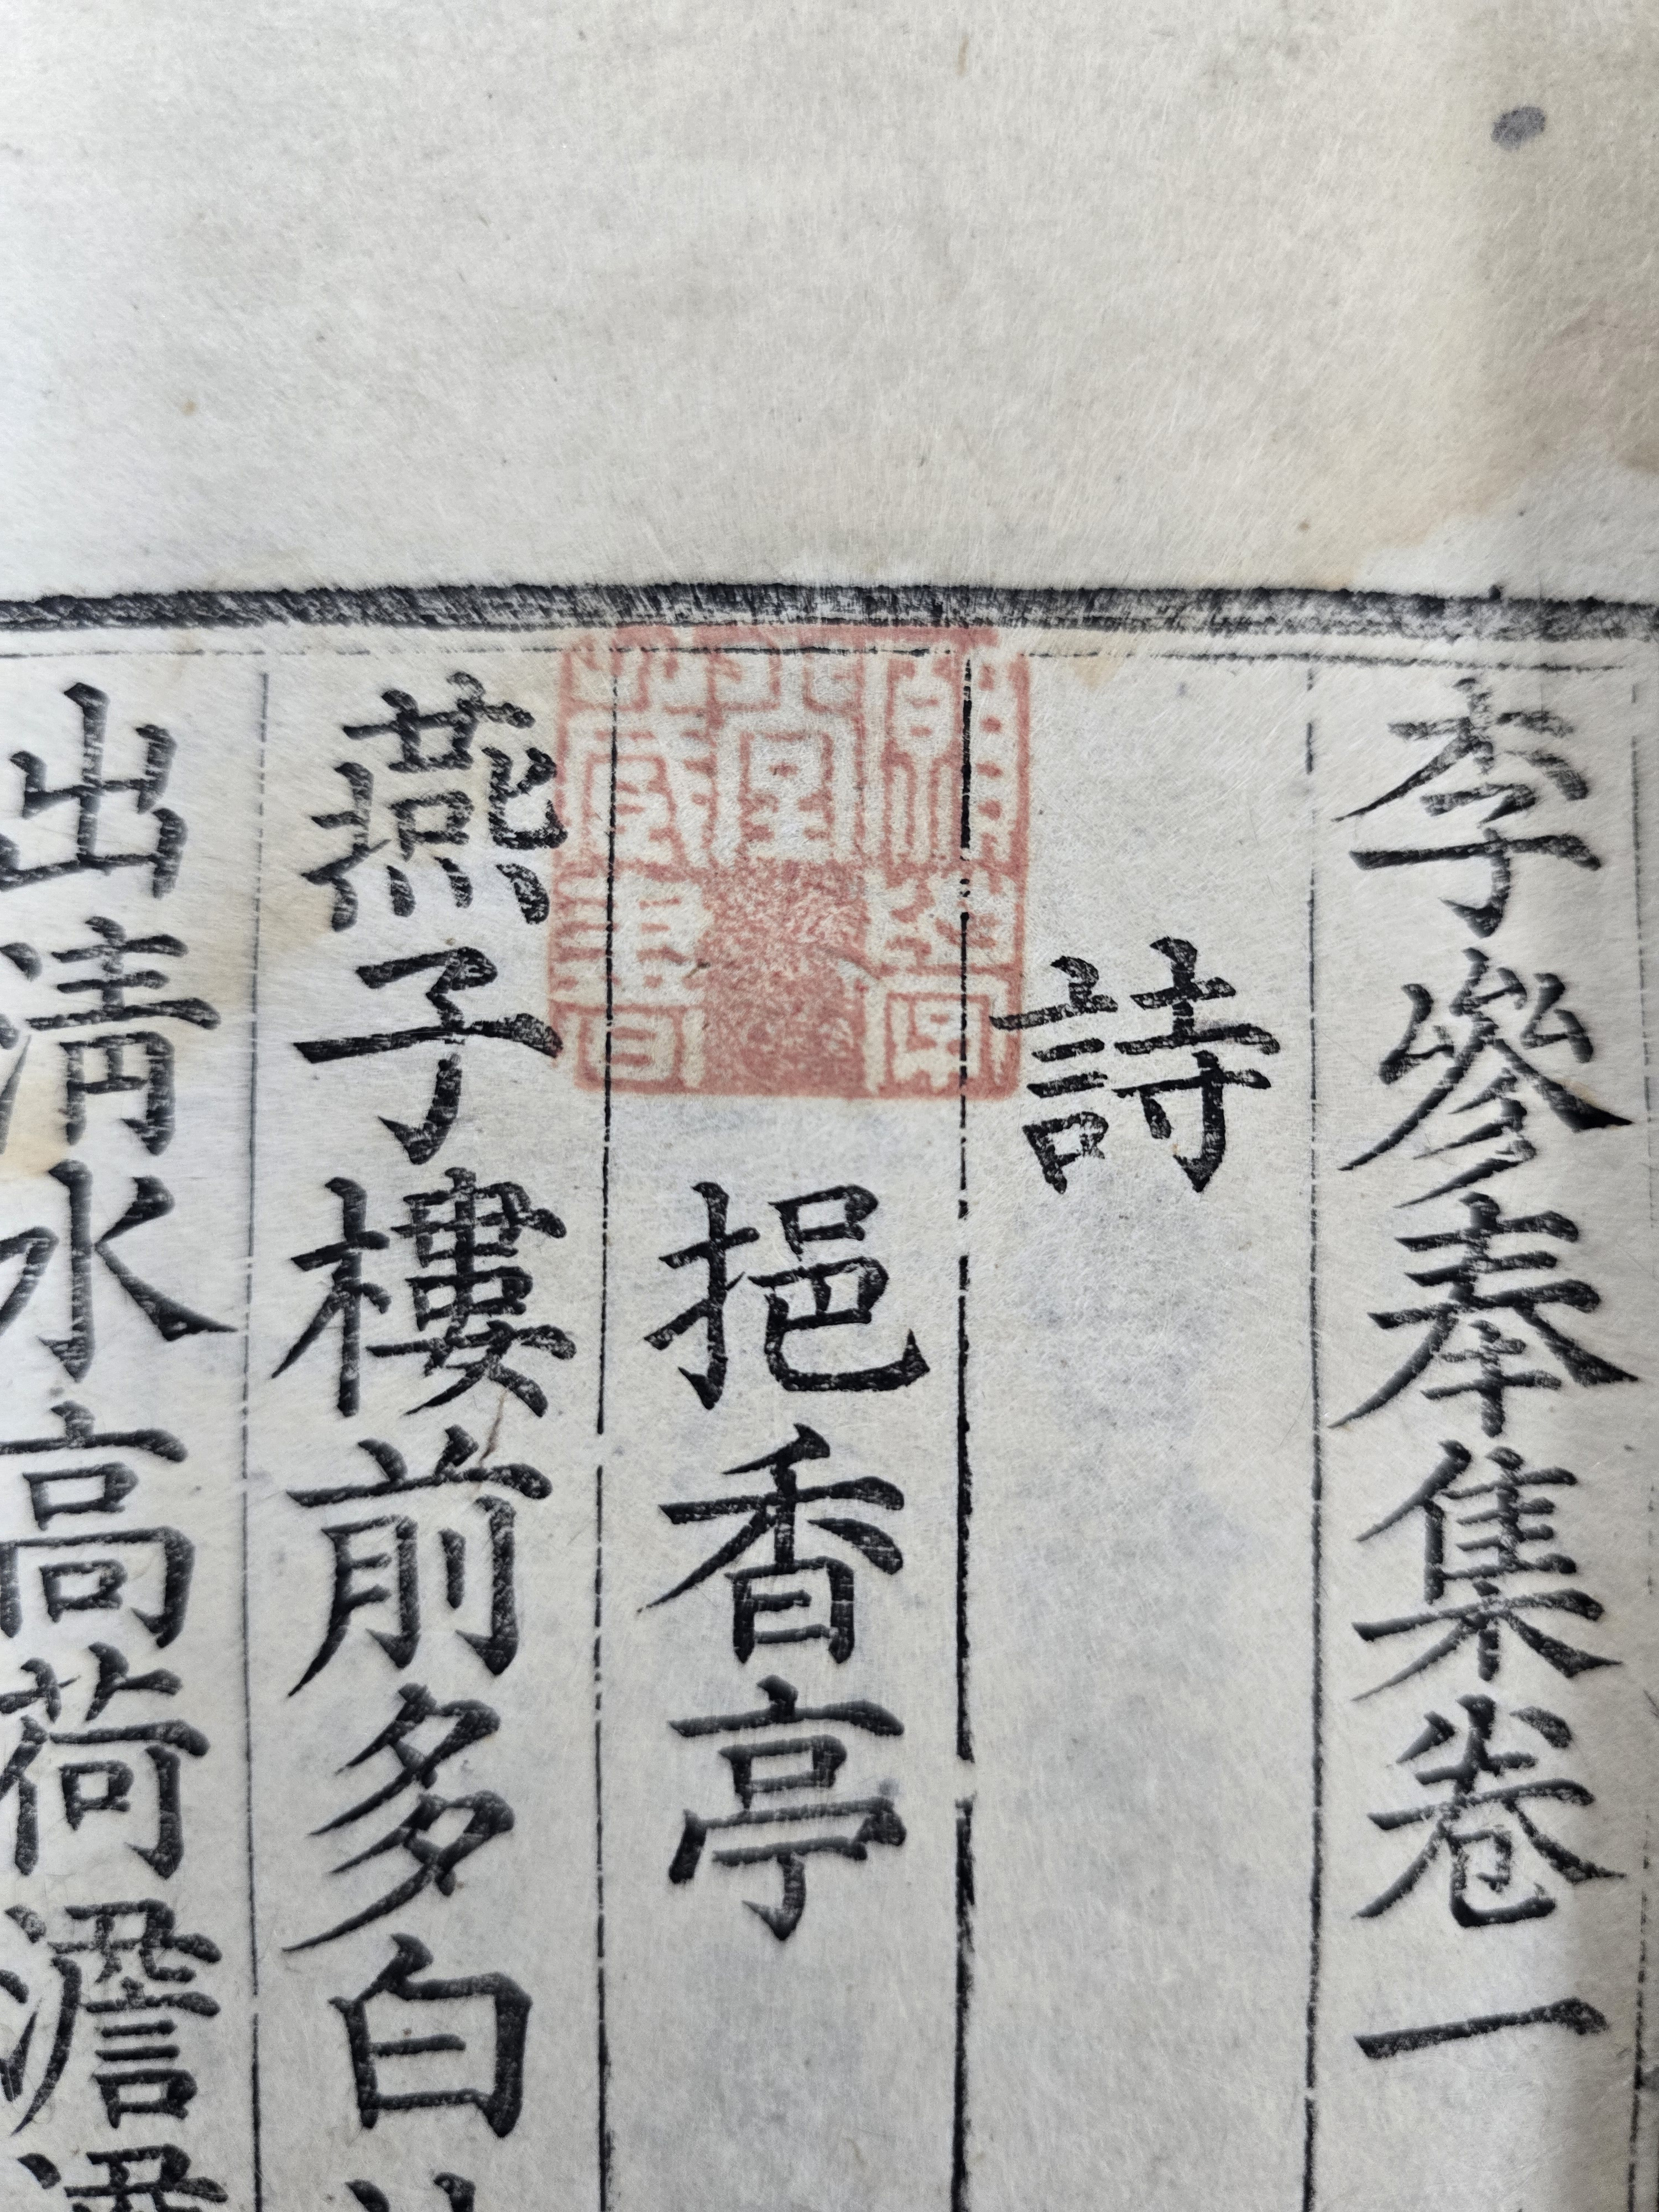 李參奉集卷一
詩
挹香亭
燕子樓前多白
出清水高荷澹